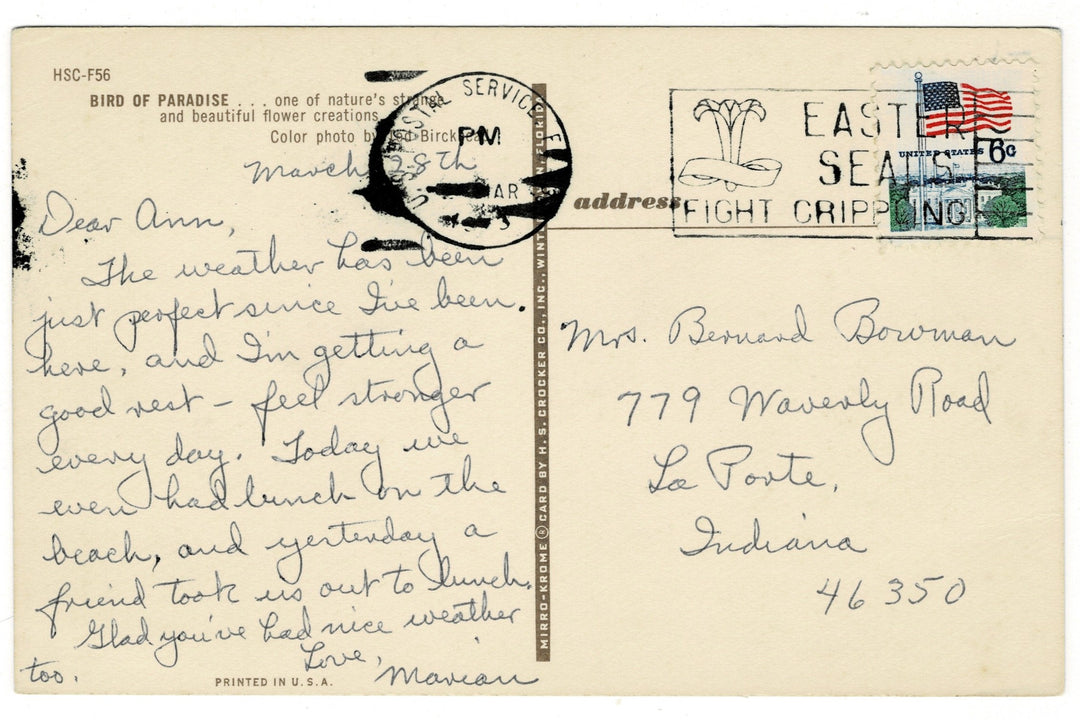 HSC-F56
BIRD OF PARADISE . . . one of nature's strange
and beautiful flower creations.
Color photo by
March 28th
Dear Ann,
The weather has been
just perfect since I've been
here, and I'm getting a
good rest – feel stronger
every day. Today we
even had lunch on the
beach, and yesterday a
friend took us out to lunch.
Glad you've had nice weather
too.
Love,
Marian
PRINTED IN U.S.A.
MIRRO-KROME ® CARD BY H. S. CROCKER CO., INC., WINT
U.S. POSTAL SERVICE
PM
MAR
EASTER
SEALS
FIGHT CRIPPLING
UNITED STATES 6c
address
Mrs. Bernard Bowman
779 Waverly Road
La Porte,
Indiana
46350